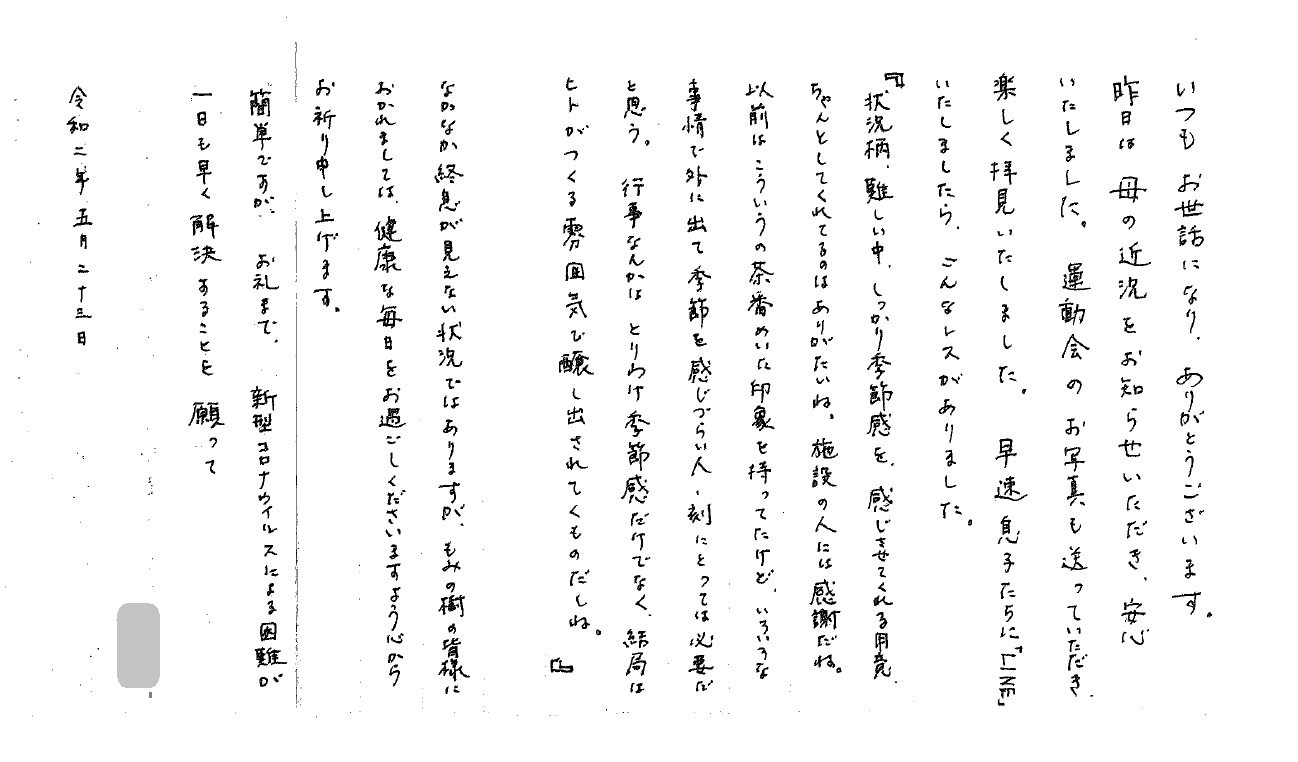 いつもお世話になり、ありがとうございます。
昨日は母の近況をお知らせいただき、安心
いたしました。運動会のお写真も送っていただき、
楽しく拝見いたしました。早速息子たちに「LINE」
いたしましたら、こんなレスがありました。
『状況柄、難しい中、しっかり季節感を、感じさせてくれる用意、
ちゃんとしてくれてるのはありがたいね。施設の人には感謝だね。
以前はこういうの茶番めいた印象を持ってたけど、いろいろな
事情で外に出て季節を感じづらい人、刻にとっては必要だ
と思う。行事なんかは とりわけ季節感だけでなく、結局は
ヒトがつくる雰囲気で醸し出されてくものだしね。』
なかなか終息が見えない状況ではありますが、もみの樹の皆様に
おかれましては、健康な毎日をお過ごしくださいますよう心から
お祈り申し上げます。
簡単ですが、お礼まで、新型コロナウィルスによる困難が
一日も早く解決することを願って
令和二年五月二十三日